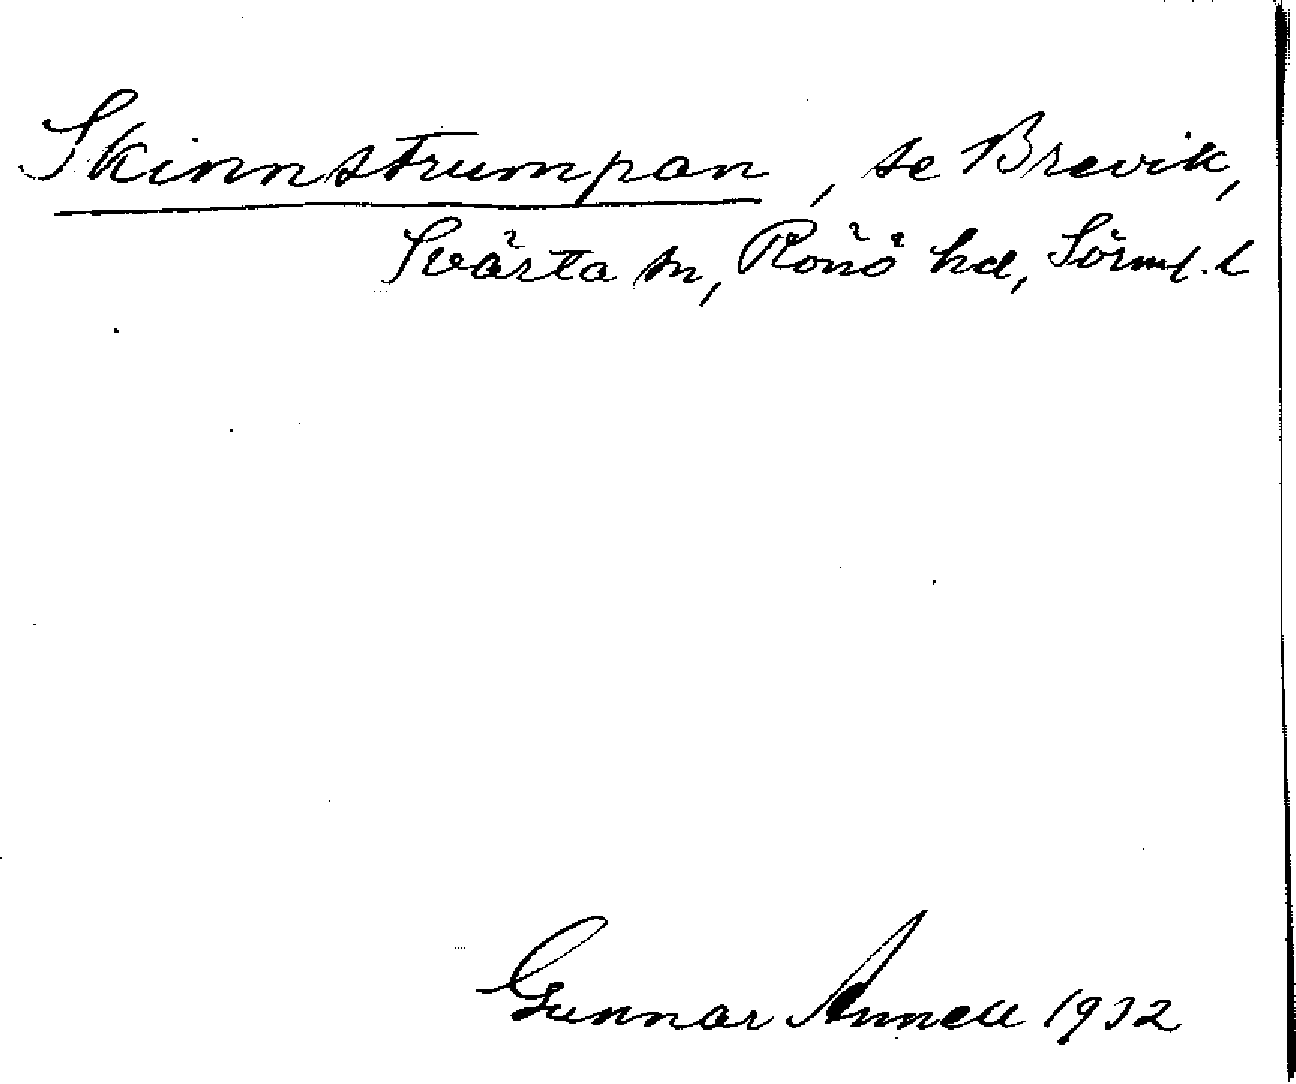 Skinnstrumpan, se Brevik,
Svärta sn, Rönö hd, Sörml. l
Gunnar Annell 1932